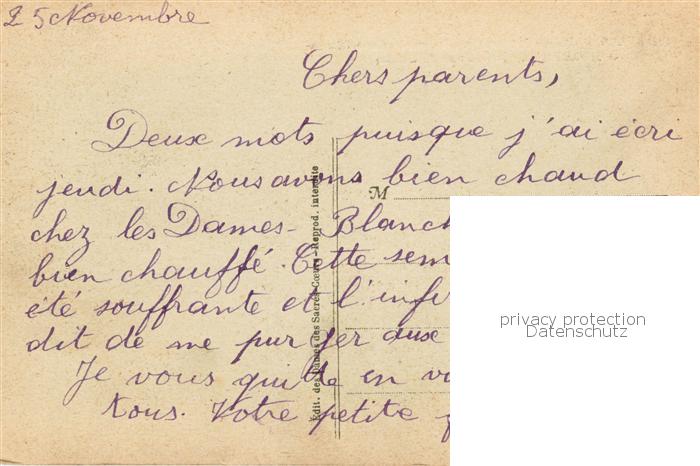 25 Novembre
Chers parents,
Deux mots puisque j'ai écri
jeudi. Nous avons bien chaud
M
chez les Dames-Blanch
bien chauffé. Cette sem
été souffrante et l'infir
dit de me purger aux
Je vous quitte en vo
tous. Votre petite
Edit. des Dames des Sacrés-Cœurs - Reprod. interdite
privacy protection
Datenschutz